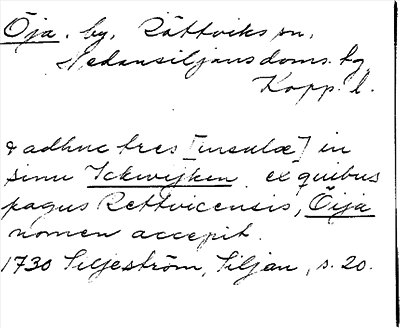 Öja, by, Rättviks sn,
Nedansiljans doms. hg
Kopp. l.
& adhuc tres [insulæ] in
sinu Ickwijken ex quibus
pagus Rettvicensis, Öija
nomen accepit.
1730 Siljeström, Siljan, s. 20.